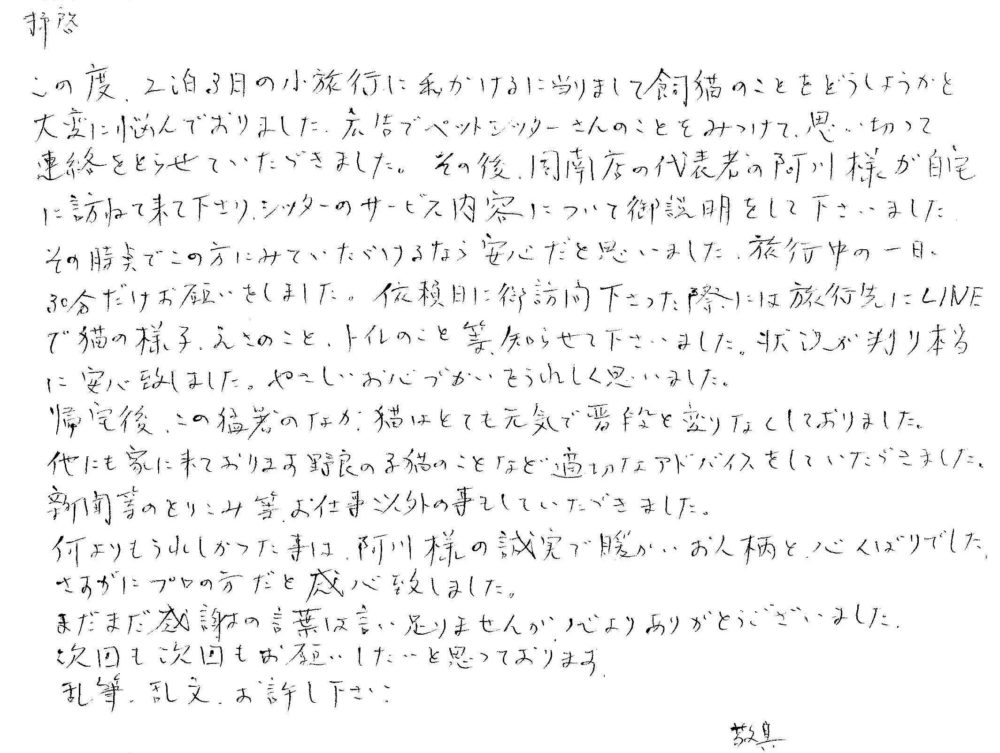 拝啓
この度、2泊3日の小旅行に私かけるに当りまして飼猫のことをどうしようかと
大変に悩んでおりました、広告でペットシッターさんのことをみつけて、思い切って
連絡をとらせていただきました。その後、周南店の代表者の阿川様が自宅
に訪ねて来て下さり、シッターのサービス内容について御説明をして下さいました
その時点でこの方にみていただけるなら安心だと思いました、旅行中の一日、
30分だけお願いをしました。依頼日に御訪問下さった際には旅行先にLINE
で猫の様子、えさのこと、トイレのこと等、知らせて下さいました。状況が判り本当
に安心致しました。やさしいお心づかいをうれしく思いました。
帰宅後、この猛暑のなか、猫はとても元気で普段と変りなくしておりました。
他にも家に来ております野良の子猫のことなど適切なアドバイスをしていただきました。
新聞等のとりこみ等、お仕事以外の事もしていただきました。
何よりもうれしかった事は、阿川様の誠実で暖かいお人柄と、心くばりでした、
さすがにプロの方だと感心致しました。
まだまだ感謝の言葉は言い足りませんが、心よりありがとうございました、
次回も次回もお願いしたいと思っております、
乱筆、乱文、お許し下さい
敬具